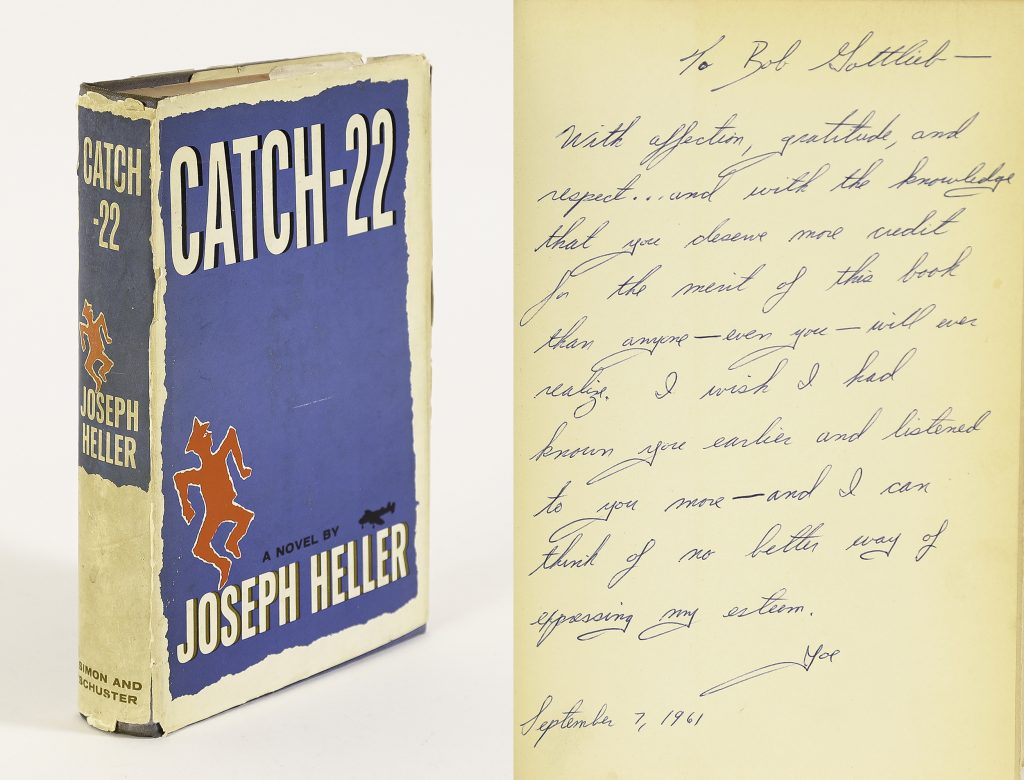 CATCH
-22
JOSEPH
HELLER
SIMON AND
SCHUSTER
CATCH-22
A NOVEL BY
JOSEPH HELLER
To Bob Gottlieb—
With affection, gratitude, and
respect...and with the knowledge
that you deserve more credit
for the merit of this book
than anyone—even you—will ever
realize. I wish I had
known you earlier and listened
to you more—and I can
think of no better way of
expressing my esteem.
Joe
September 7, 1961